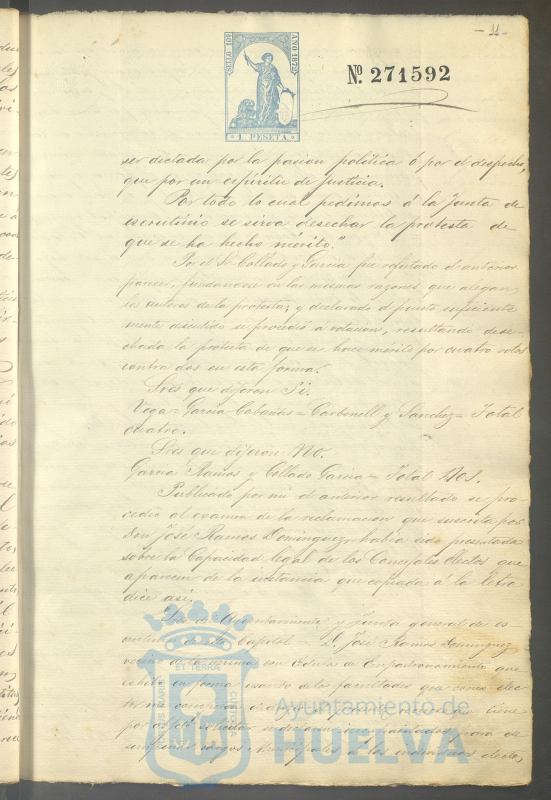 - 11 -
SELLO 10º
AÑO 1872
1 PESETA
Nº 271592
ser dictada por la pasion politica ó por el despecho,
que por un espíritu de justicia.
Por todo lo cual pedimos á la Junta de
escrutinio se sirva desechar la protesta de
que se ha hecho mérito."
Por el Sr Collado y Garcia fue refutado el anterior
parecer, fundandose en las mismas razones que alegan
los autores de la protesta; y declarado el punto suficiente
mente discutido se procedió á votacion, resultando dese-
chada la protesta de que se hace mérito por cuatro votos
contra dos en esta forma.
Sres que dijeron Si.
Vega = Garcia Cabañas = Carbonell y Sanchez = Total
cuatro.
Sres que dijeron No.
Garcia Ramos y Collado Garcia = Total dos.
Publicado por mi el anterior resultado se pro-
cedió al examen de la reclamacion que suscrita por
Don José Ramos Dominguez, habia sido presentada
sobre la Capacidad legal de los Concejales electos que
aparecen de la instancia que copiada á la letra
dice asi.
Sres de Ayuntamiento y Junta general de es
crutinio de esta Capital = D. José Ramos Dominguez
vecino de la misma con Cédula de Empadronamiento que
exhibe en forma usando de las facultades que
la ley
de
cargos Municipales á los individuos electos,
ET TERRA
Ayuntamiento de
HUELVA